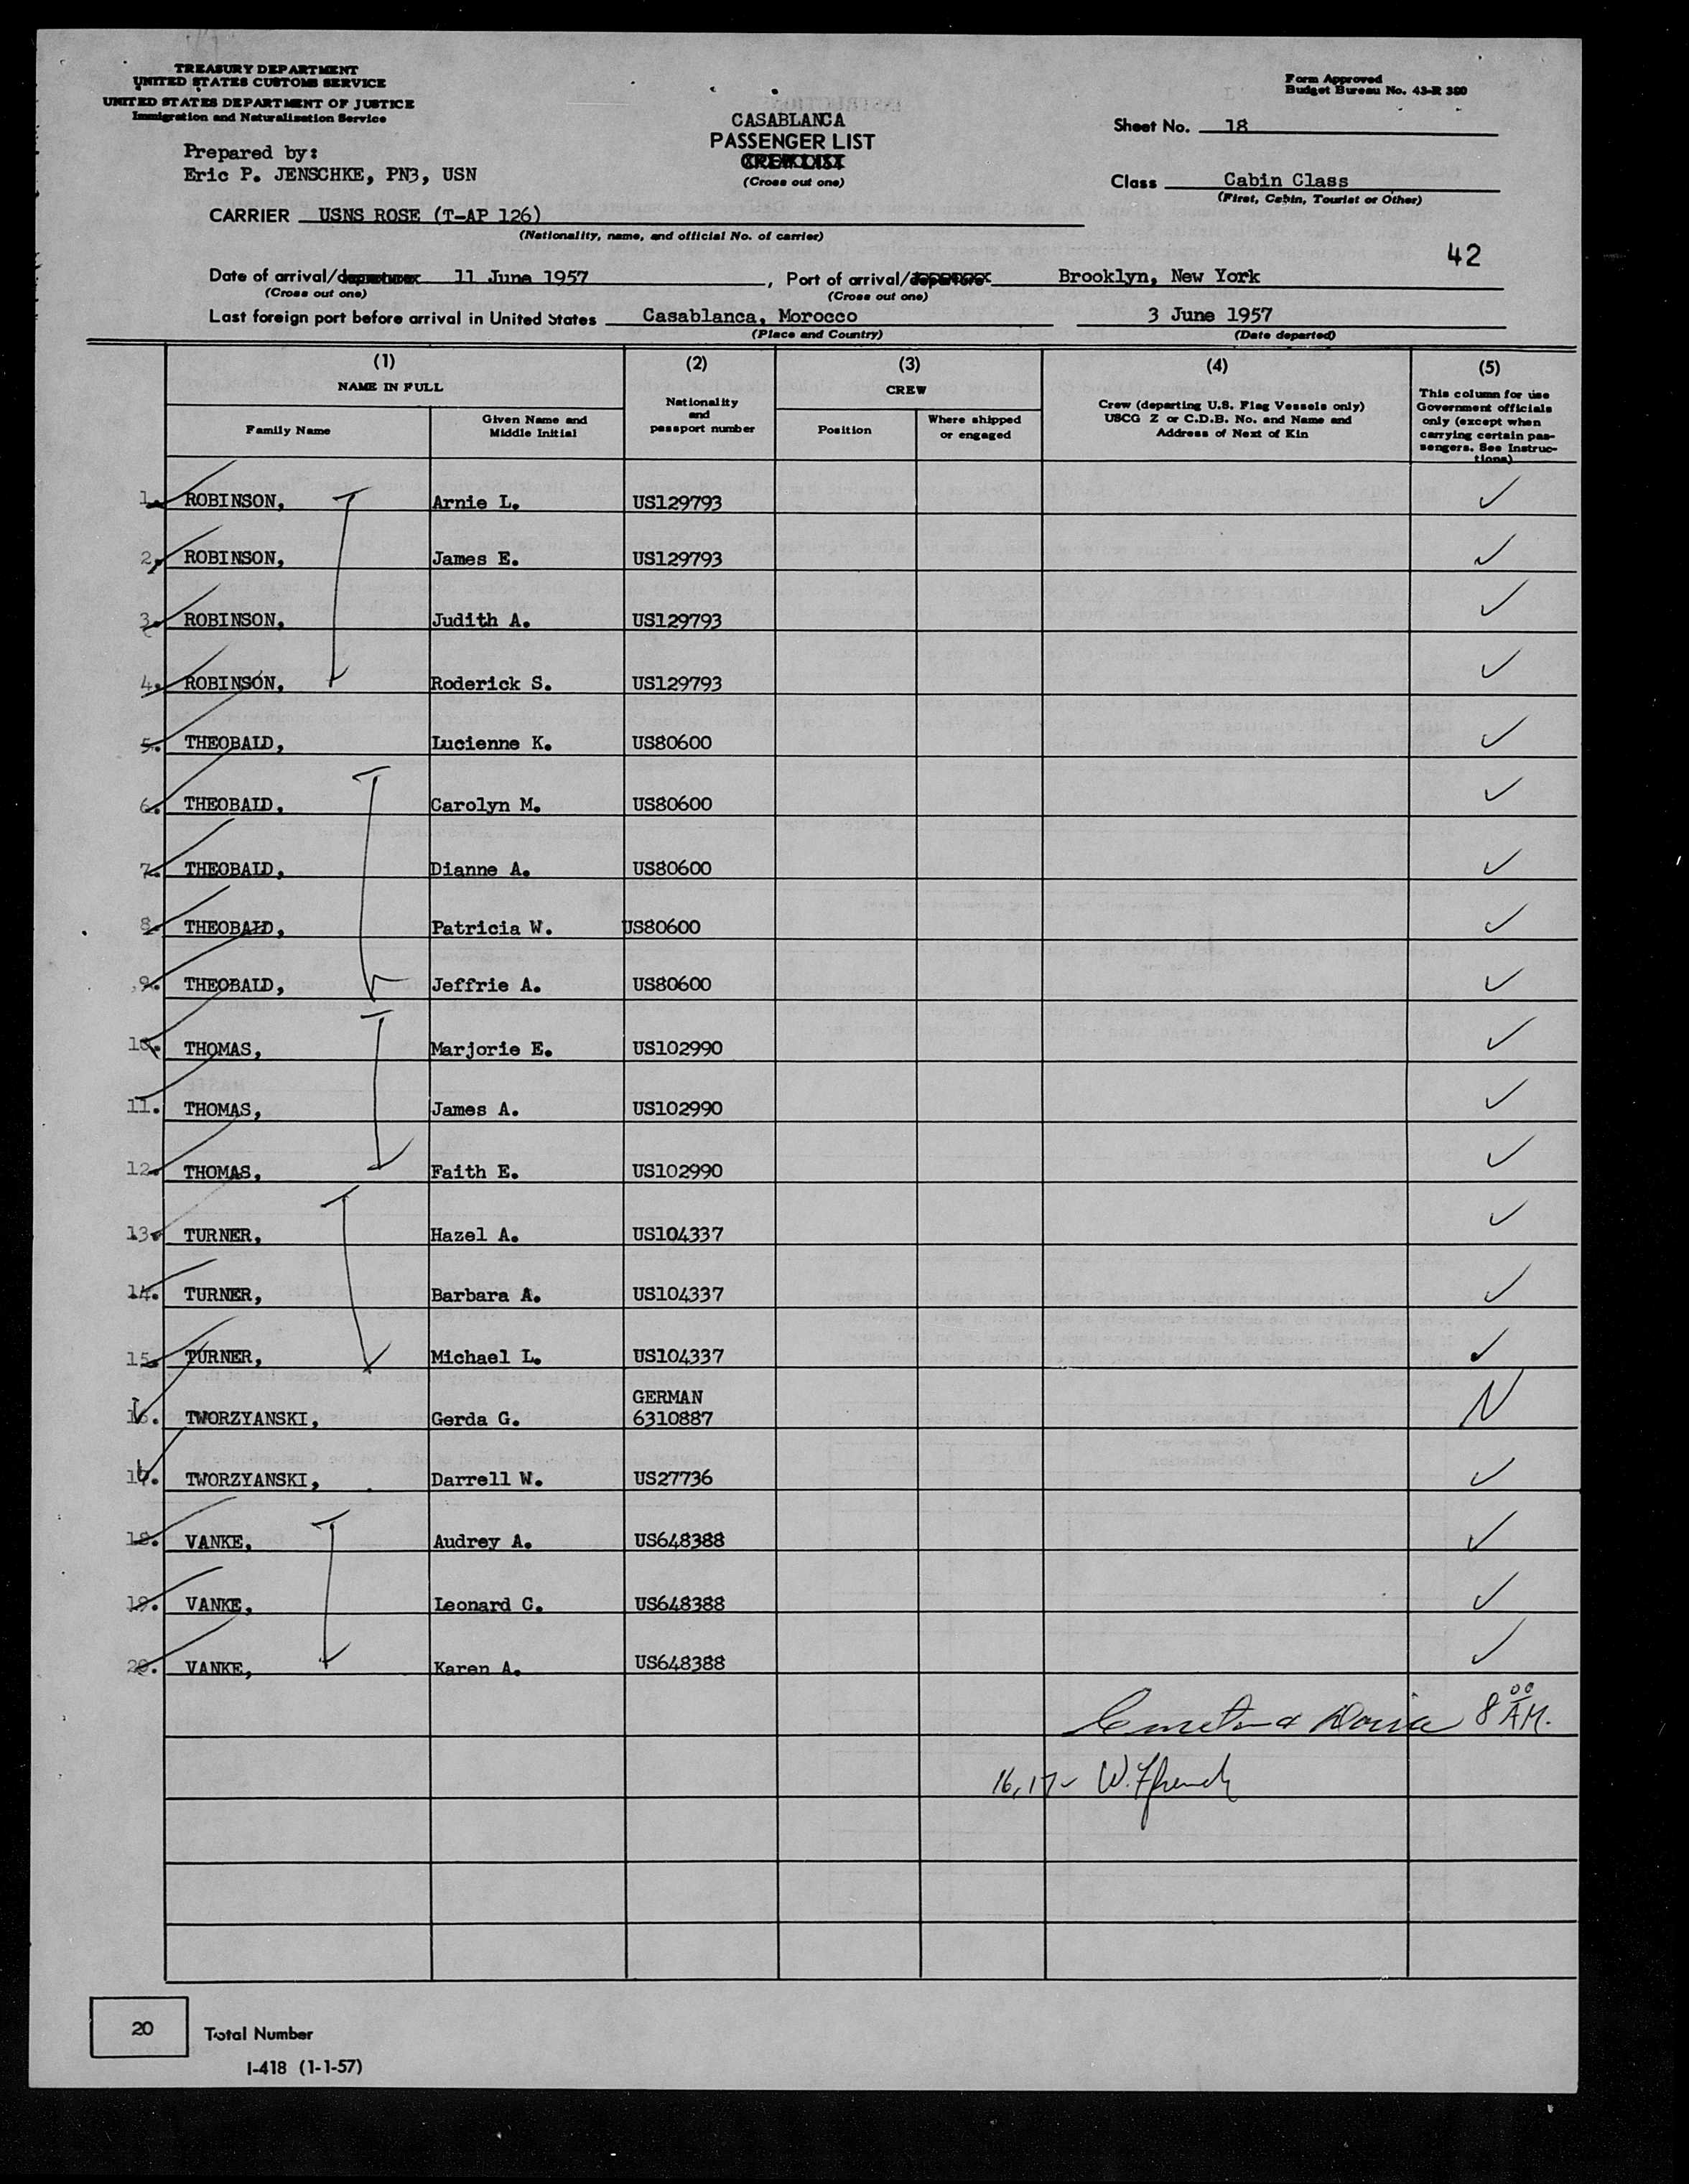 TREASURY DEPARTMENT
UNITED STATES CUSTOMS SERVICE
UNITED STATES DEPARTMENT OF JUSTICE
Immigration and Naturalization Service
Form Approved
Budget Bureau No. 43-R 380
CASABLANCA
PASSENGER LIST
CREW LIST
(Cross out one)
Sheet No. 18
Prepared by:
Eric P. JENSCHKE, PN3, USN
Class Cabin Class
(First, Cabin, Tourist or Other)
CARRIER USNS ROSE (T-AP 126)
(Nationality, name, and official No. of carrier)
42
Date of arrival/departure 11 June 1957, Port of arrival/departure Brooklyn, New York
(Cross out one) (Cross out one)
Last foreign port before arrival in United States Casablanca, Morocco 3 June 1957
(Place and Country) (Date departed)
(1) (2) (3) (4) (5)
NAME IN FULL
Family Name
Given Name and
Middle Initial
Nationality
and
passport number
CREW
Position
Where shipped
or engaged
Crew (departing U.S. Flag Vessels only)
USCG Z or C.D.B. No. and Name and
Address of Next of Kin
This column for use
Government officials
only (except when
carrying certain pas-
sengers. See Instruc-
tions)
1. ROBINSON, Arnie L. US129793
2. ROBINSON, James E. US129793
3. ROBINSON, Judith A. US129793
4. ROBINSON, Roderick S. US129793
5. THEOBALD, Lucienne K. US80600
6. THEOBALD, Carolyn M. US80600
7. THEOBALD, Dianne A. US80600
8. THEOBALD, Patricia W. US80600
9. THEOBALD, Jeffrie A. US80600
10. THOMAS, Marjorie E. US102990
11. THOMAS, James A. US102990
12. THOMAS, Faith E. US102990
13. TURNER, Hazel A. US104337
14. TURNER, Barbara A. US104337
15. TURNER, Michael L. US104337
GERMAN
16. TWORZYANSKI, Gerda G. 6310887 N
17. TWORZYANSKI, Darrell W. US27736
18. VANKE, Audrey A. US648388
19. VANKE, Leonard C. US648388
20. VANKE, Karen A. US648388
8 00 AM.
16, 17 - W.
20 Total Number
I-418 (1-1-57)